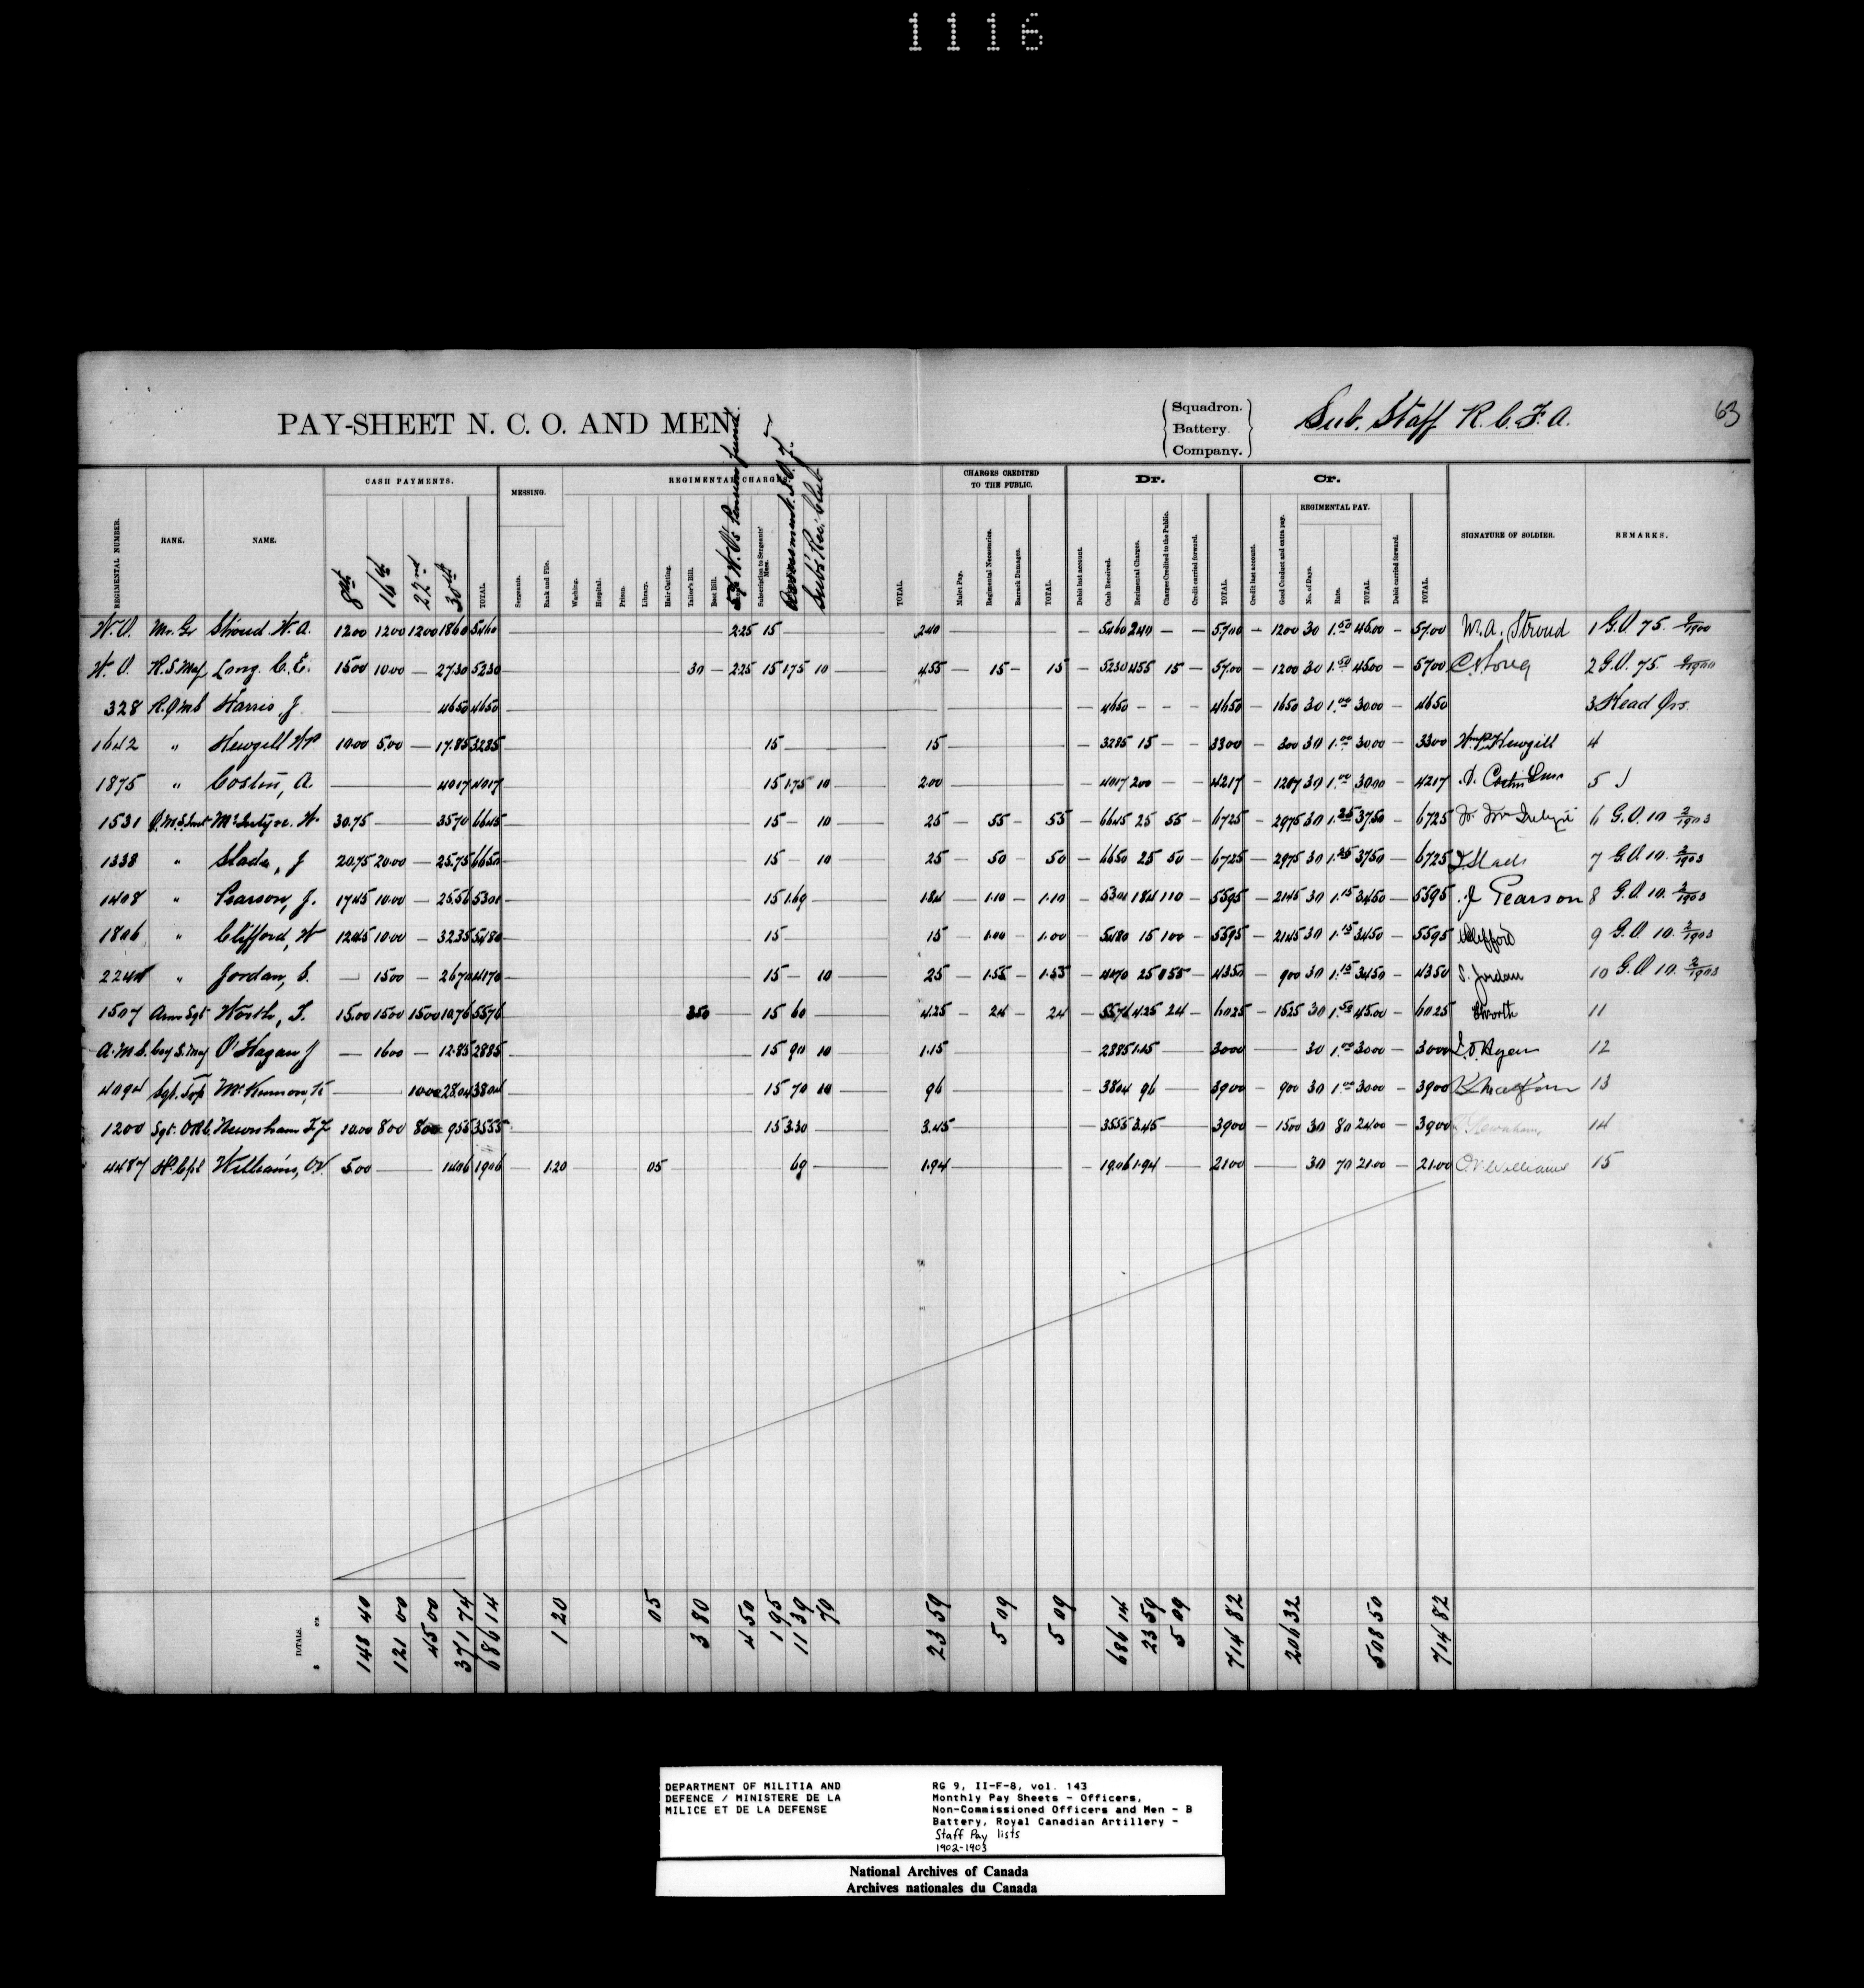 1116
PAY-SHEET N. C. O. AND MEN.
Squadron.
Battery.
Company.
Sub. Staff R.C.F.A.
63
CASH PAYMENTS.
REGIMENTAL CHARGES
CHARGES CREDITED TO THE PUBLIC.
Dr.
Cr.
REGIMENTAL PAY.
REGIMENTAL NUMBER. RANK. NAME. 8th 16th 22nd 30th TOTAL. MESSING. Sergeants. Rank and File. Washing. Hospital. Prison. Library. Hair Cutting. Tailor's Bill. Boot Bill. W.O's Pension fund. Subscription to Sergeants' Mess. Subs: Rec: Club TOTAL Mulct Pay. Regimental Necessaries. Barrack Damages. TOTAL Debit last account. Cash Received. Regimental Charges. Charges Credited to the Public. Credit carried forward. TOTAL Credit last account. Good Conduct and extra pay. No. of Days. Rate. TOTAL Debit carried forward. TOTAL. SIGNATURE OF SOLDIER. REMARKS.
W.O. Mr. Gr Stroud W.A. 1200 1200 1200 1860 5460 — 225 15 — 240 — 5460 240 — — 5700 — 1200 30 1.50 4500 — 5700 W.A. Stroud 1 G.O 75.
W.O. R.S.Maj Long. C.E. 1500 1000 — 2730 5230 — 30 — 225 15 175 10 — 455 — 15 — 15 — 5230 455 15 — 5700 — 1200 30 1.50 4500 — 5700 C E Long 2 G.O. 75.
328 R.Q.M.S Harris, J — 4650 4650 — 4650 — — — 4650 — 1650 30 1.00 3000 — 4650 3 Head Qrs.
1642 " Hewgill W 1000 500 — 1785 3285 — 15 — 15 — 3285 15 — — 3300 — 300 30 1.00 3000 — 3300 Hewgill 4
1875 " Costin, A. — 4017 4017 — 15 175 10 — 200 — 4017 200 — — 4217 — 1217 30 1.00 3000 — 4217 A. Costin 5
1531 Q.M.S.Inst McIntyre. W. 3075 — 3570 6645 — 15 — 10 — 25 — 55 — 55 — 6645 25 55 — 6725 — 2975 30 1.25 3750 — 6725 6 G.O. 10 2/1903
1338 " Slade, J 2075 2000 — 2575 6650 — 15 — 10 — 25 — 50 — 50 — 6650 25 50 — 6725 — 2975 30 1.25 3750 — 6725 J Slade 7 G.O. 10. 2/1903
1408 " Pearson, J. 1745 1000 — 2556 5301 — 15 169 — 184 — 110 — 110 — 5301 184 110 — 5595 — 2145 30 1.15 3450 — 5595 J Pearson 8 G.O. 10. 2/1903
1806 " Clifford, W 1245 1000 — 3235 5480 — 15 — 15 — 100 — 100 — 5480 15 100 — 5595 — 2145 30 1.15 3450 — 5595 Clifford 9 G.O. 10. 2/1903
" Jordan, S. — 1500 — 2670 4170 — 15 — 10 — 25 — 155 — 155 — 4170 25 155 — 4350 — 900 30 1.15 3450 — 4350 S. Jordan 10 G.O 10. 2/1903
1507 Arm Sgt Worth, T. 1500 1500 1500 1076 5576 — 350 — 15 60 — 425 — 24 — 24 — 5576 425 24 — 6025 — 1525 30 1.50 4500 — 6025 Worth 11
A.M.S. O'Hagan J — 1600 — 1285 2885 — 15 90 10 — 115 — 2885 115 — — 3000 — 30 1.00 3000 — 3000 12
4094 Sgt. Trp McKinnon, K — 1000 2804 3804 — 15 70 10 — 96 — 3804 96 — — 3900 — 900 30 1.00 3000 — 3900 13
1200 Sgt. Newsham 1000 800 800 955 3555 — 15 330 — 345 — 3555 345 — — 3900 — 1500 30 80 2400 — 3900 14
4487 Williams, O.V. 500 — 1406 1906 — 120 — 05 — 69 — 194 — 1906 194 — — 2100 — 30 70 2100 — 2100 O.V. Williams 15
TOTALS. $ cts 148 40 121 00 45 00 371 74 686 14 1 20 05 3 80 4 50 1 95 11 39 70 23 59 5 09 5 09 686 14 23 59 5 09 714 82 206 32 508 50 714 82
DEPARTMENT OF MILITIA AND
DEFENCE / MINISTERE DE LA
MILICE ET DE LA DEFENSE
RG 9, II-F-8, vol. 143
Monthly Pay Sheets - Officers,
Non-Commissioned Officers and Men - B
Battery, Royal Canadian Artillery -
Staff Pay lists
1902-1903
National Archives of Canada
Archives nationales du Canada